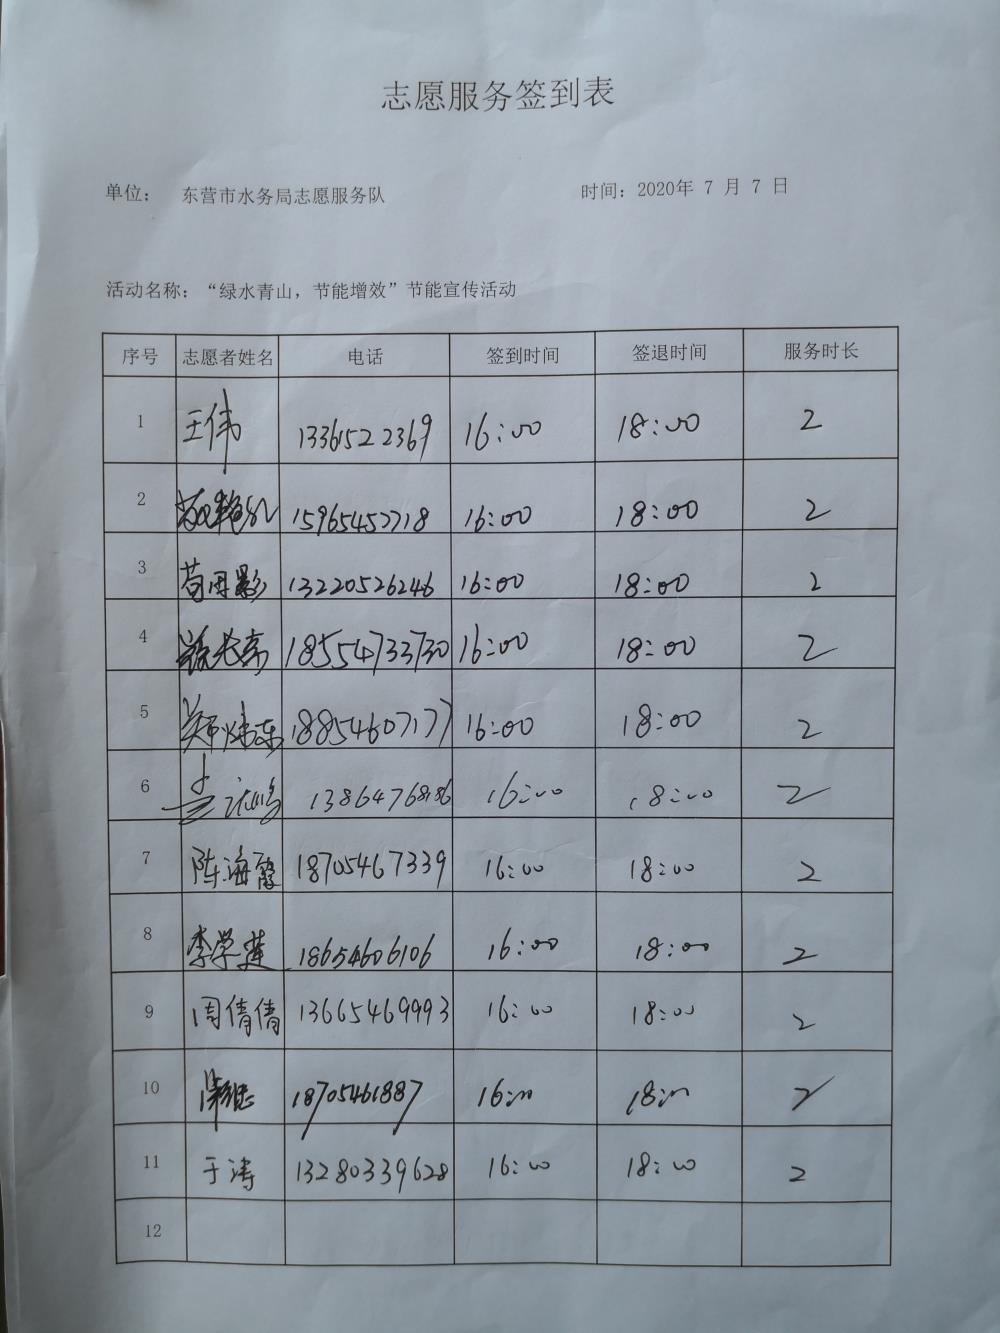 志愿服务签到表
单位： 东营市水务局志愿服务队 时间：2020年 7 月 7 日
活动名称：“绿水青山，节能增效”节能宣传活动
序号 志愿者姓名 电话 签到时间 签退时间 服务时长
1 王伟 13361522369 16:00 18:00 2
2 15965457718 16:00 18:00 2
3 苟田影 13220526246 16:00 18:00 2
4 18554733730 16:00 18:00 2
5 郑炜东 18854607177 16:00 18:00 2
6 16:00 18:00 2
7 陈海霞 18705467339 16:00 18:00 2
8 李学莲 18654606106 16:00 18:00 2
9 周倩倩 13665469993 16:00 18:00 2
10 18705461887 16:00 18:00 2
11 于涛 13280339628 16:00 18:00 2
12